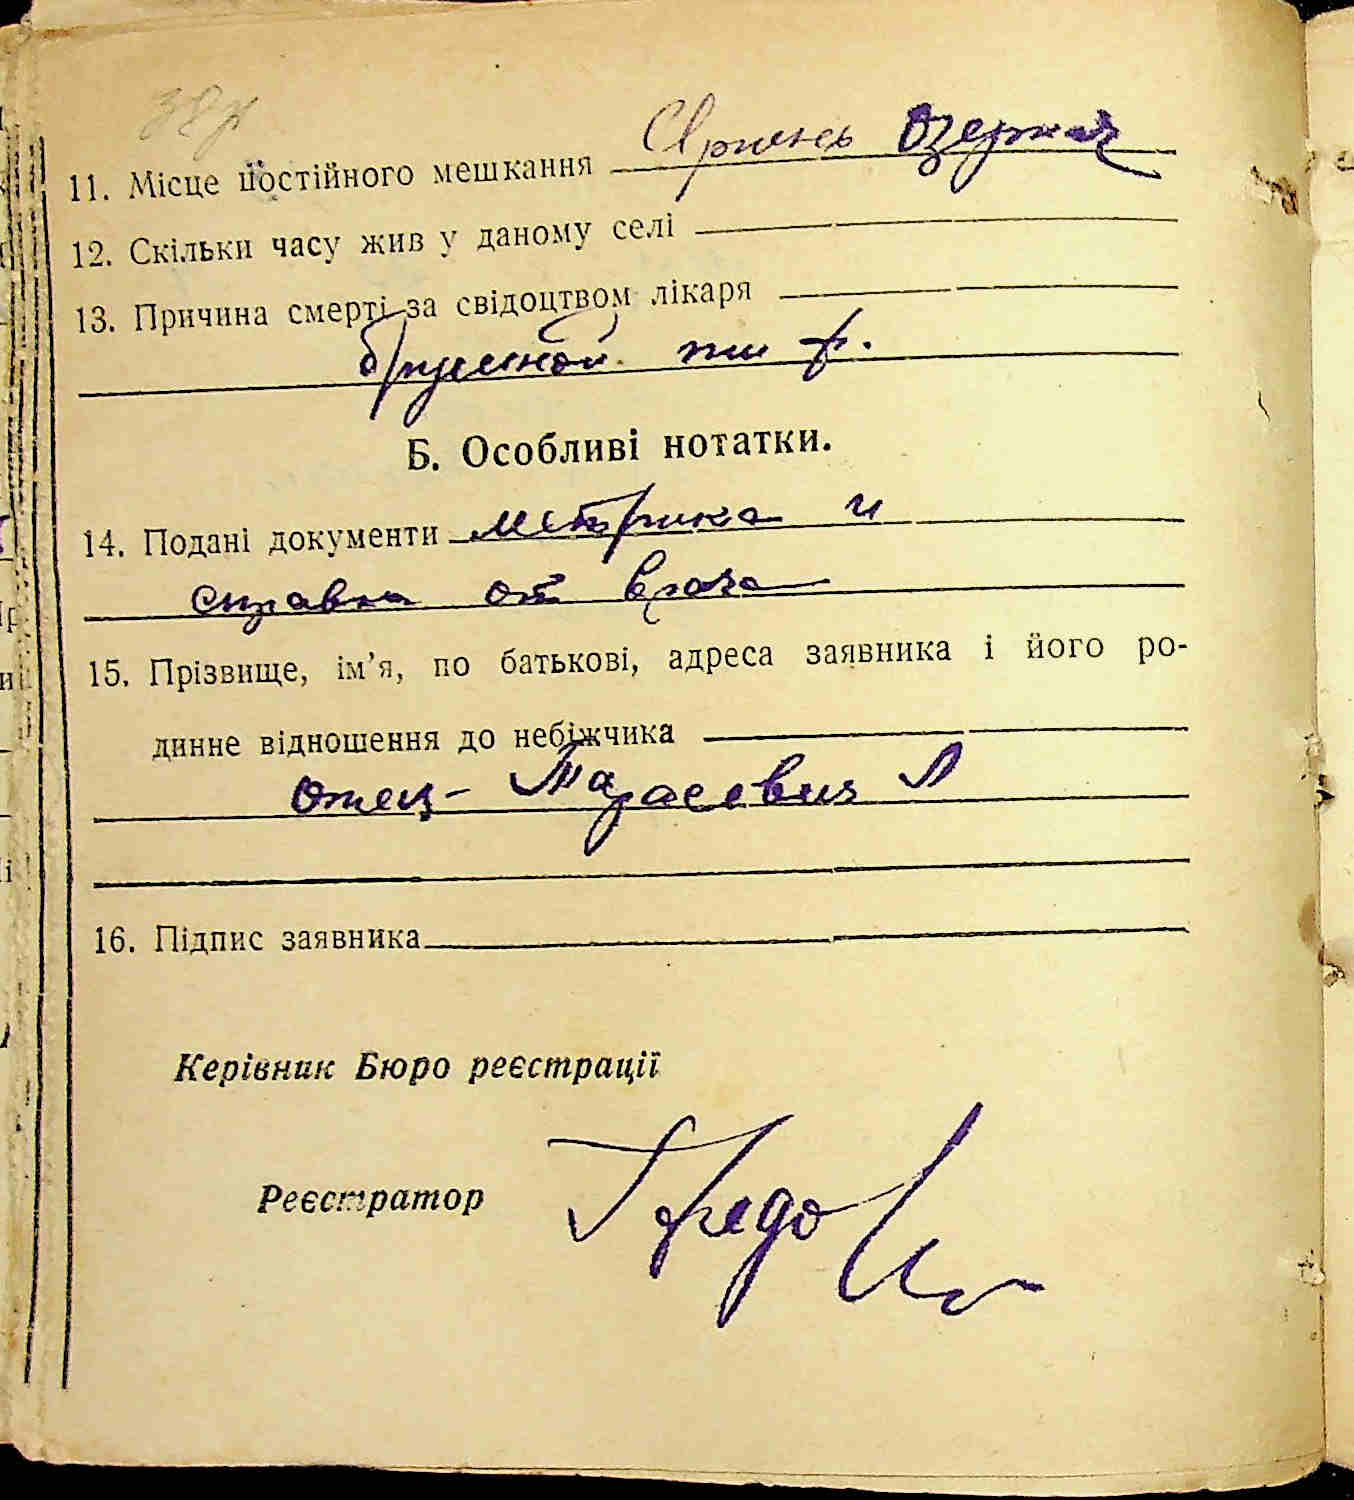 11. Місце постійного мешкання Ірпень Озерная
12. Скільки часу жив у даному селі
13. Причина смерті за свідоцтвом лікаря
брушной тиф.
Б. Особливі нотатки.
14. Подані документи метрика и
справка от врача
15. Прізвище, ім’я, по батькові, адреса заявника і його ро-
динне відношення до небіжчика
отец - Тарасевич Л
16. Підпис заявника
Керівник Бюро реєстрації
Реєстратор